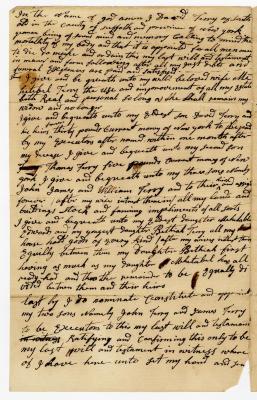 In the Name of god amen I David Terry of
old in the County of Suffolk and province of new york
being of sound mind and memory Calling to mind the
mortality of my body and that it is appointed for all men once
to Die Do make and ordain this my last will and testament
in manner and form following after all my Just debts and
funeral Expences are paid and satisfied
I give and bequeath unto my well beloved wife
Terry the use and improvement of all my Estate
both Real and personal So long as she shall remain my
widow and no longer
I give and bequeath unto my Eldest Son David Terry and
his heirs thirty pounds Current money of new york to be paid
by my Executors after named within one month after
my decease I give and bequeath unto my second son
Thomas Terry five pounds current money of new
york I give and bequeath unto my three sons namely
John James and William Terry and to their heirs
forever after my wifes interest therein all my lands and
buildings Stock and farming impliments of all sorts
I give and bequeath unto my Eldest Daughter Mehetabel
Edwards and my youngest Daughter Bethiah Terry all my
house hold goods of Every kind after my wives interest
Equally between them my Daughter Bethiah first
having as much as my daughter Mehetabel has all
ready had and then the remainder to be Equally di
vided between them and their heirs
last by I do nominate Constitute and appoint
my two sons Namely John Terry and James Terry
to be Executors to this my last will and testament
Ratifying and Confirming this only to be
my last will and testament in witness where
of I have here unto set my hand and seal